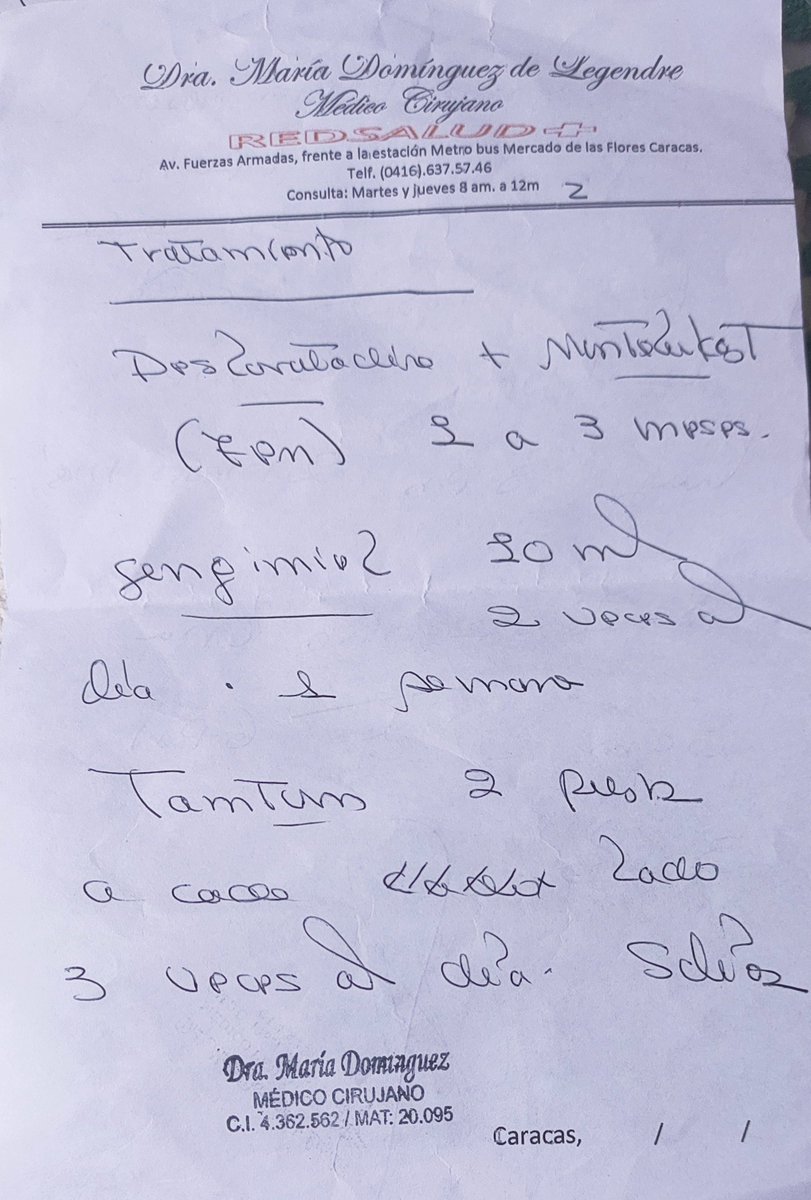 Dra. María Domínguez de Legendre
Médico Cirujano
REDSALUD+
Av. Fuerzas Armadas, frente a la estación Metro bus Mercado de las Flores Caracas.
Telf. (0416).637.57.46
Consulta: Martes y jueves 8 am. a 12m
2
Tratamiento
+
a 3 meses.
gengimiel 10 ml
2 veces al
día . 1 semana
Tamtum 2 push
a cada lado
3 veces al día. 5 días
Dra. María Domínguez
MÉDICO CIRUJANO
C.I. 4.362.562 / MAT: 20.095
Caracas, / /